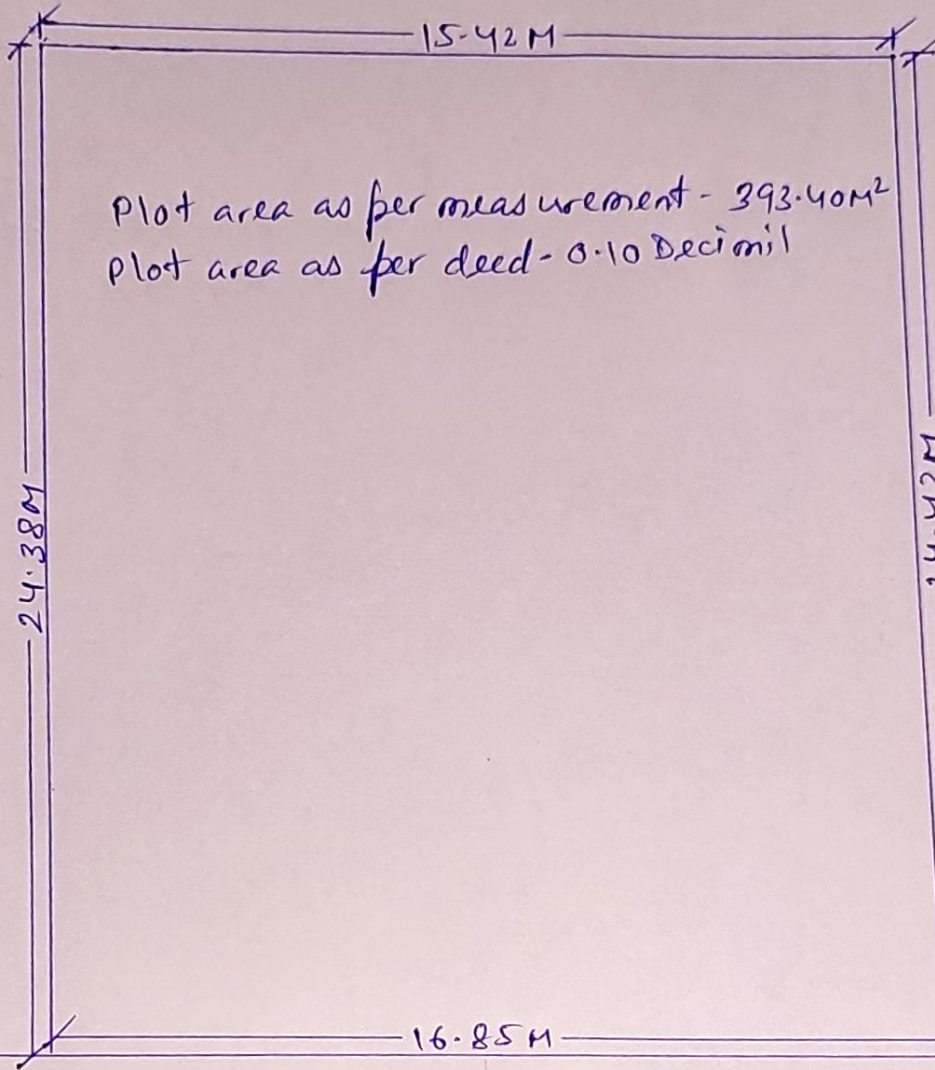 15.42M
Plot area as per measurement - 393.40M²
Plot area as per deed - 0.10 Decimil
24.38M
16.85M